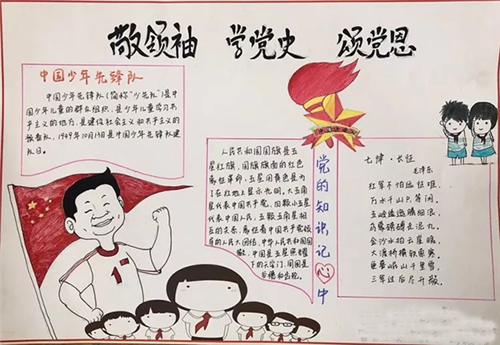 敬领袖 学党史 颂党恩
中国少年先锋队
中国少年先锋队(简称“少先队”)是中
国少年儿童的群众组织,是少年儿童学习共
产主义的地方,是建设社会主义和共产主义的
预备队,1949年10月13日是中国少年先锋队建
队日。
1
人民共和国国旗是五
星红旗,国旗旗面的红色
象征革命,五星用黄色是为
了在红地上显示光明。大五角
星代表中国共产党,四颗小五角星
代表中国人民,五颗五角星相
互的关系,象征着中国共产党领
导的人民大团结,中华人民共和国国
徽,中间是五星照耀
下的天安门,周围是
谷穗和齿轮。
党的知识记心中
七律·长征
毛泽东
红军不怕远征难,
万水千山只等闲。
五岭逶迤腾细浪,
乌蒙磅礴走泥丸。
金沙水拍云崖暖,
大渡桥横铁索寒。
更喜岷山千里雪,
三军过后尽开颜。